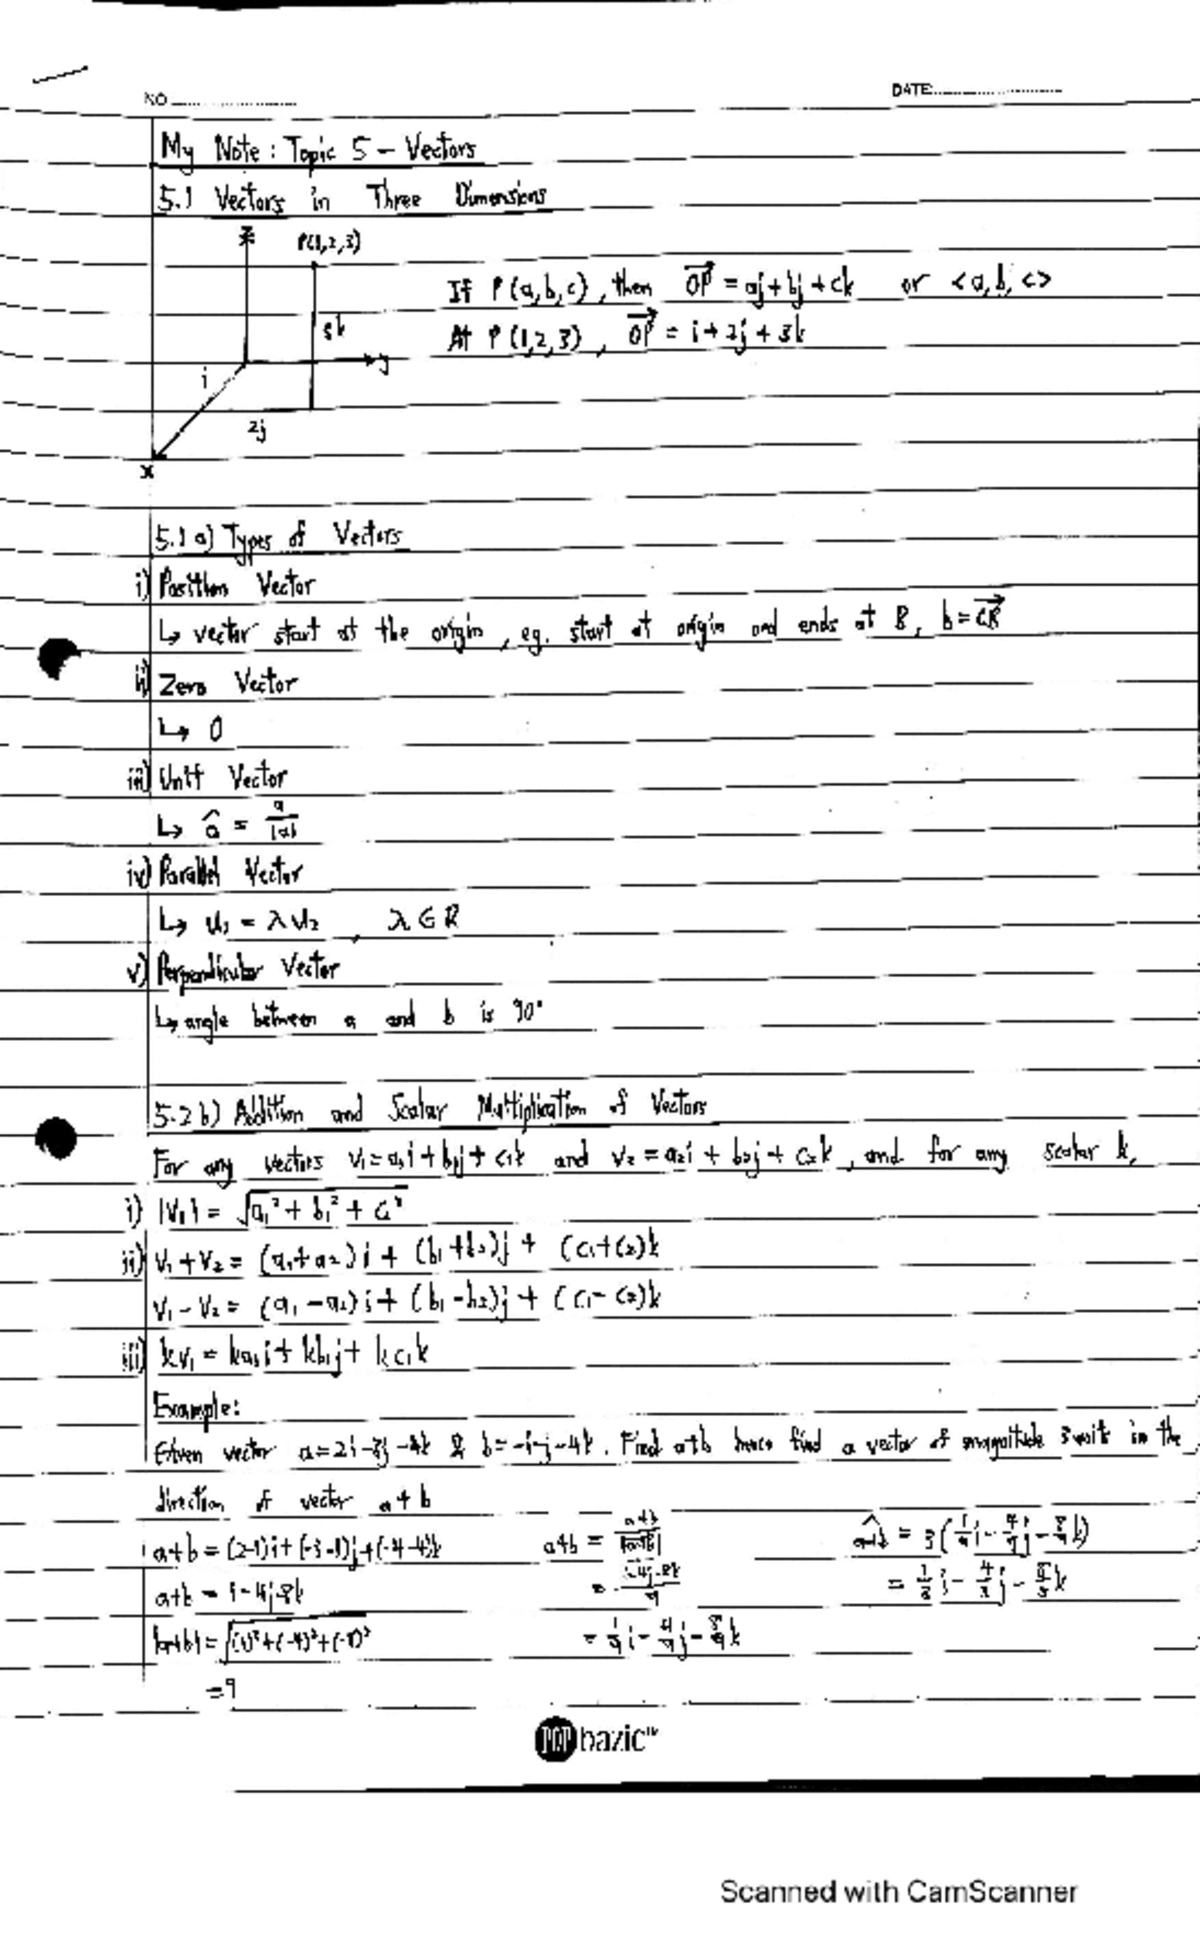 NO
DATE:
My Note : Topic 5 - Vectors
5.1 Vectors in Three Dimensions
z P(1,2,3)
If P (a,b,c), then OP = aj + bj + ck or <a,b,c>
3k
At P (1,2,3), OP = i + 2j + 3k
y
i
2j
x
5.1 a) Types of Vectors
i) Position Vector
↳ vector start at the origin, eg. start at origin and ends at B, b =
ii) Zero Vector
↳ 0
iii) Unit Vector
↳ â = a/|a|
iv) Parallel Vector
↳ V₁ = λV₂, λ ∈ R
v) Perpendicular Vector
↳ angle between a and b is 90°
5.2 b) Addition and Scalar Multiplication of Vectors
For any vectors V₁ = a₁i + b₁j + c₁k and V₂ = a₂i + b₂j + c₂k, and for any scalar k,
i) |V₁| = √a₁² + b₁² + c₁²
ii) V₁ + V₂ = (a₁+a₂)i + (b₁+b₂)j + (c₁+c₂)k
V₁ - V₂ = (a₁-a₂)i + (b₁-b₂)j + (c₁-c₂)k
iii) kV₁ = ka₁i + kb₁j + kc₁k
Example:
Given vector a = 2i-3j-4k & b = -i-j-4k. Find a+b hence find a vector of magnitude 3 unit in the
direction of vector a+b
a+b = (2-1)i+(-3-1)j+(-4-4)k a+b = a+b/|a+b| a+b = 3(1/9i - 4/9j - 8/9k)
a+b = i-4j-8k = i-4j-8k/9 = 1/3i - 4/3j - 8/3k
|a+b| = √(1)²+(-4)²+(-8)² = 1/9i - 4/9j - 8/9k
= 9
POP bazic
Scanned with CamScanner